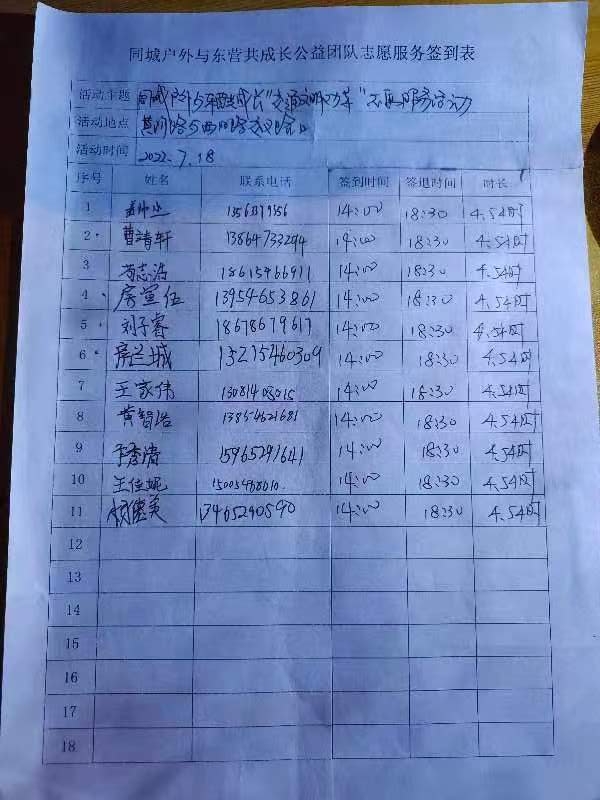 同城户外与东营共成长公益团队志愿服务签到表
活动主题 同城户外与东营共成长"交通文明劝导"志愿服务活动
活动地点 黄河路与西四路交叉路口
活动时间 2022.7.18
序号 姓名 联系电话 签到时间 签退时间 时长
1 14:00 18:30 4.5小时
2 曹清轩 13864733294 14:00 18:30 4.5小时
3 志浩 18615466911 14:00 18:30 4.5小时
4 房宣伍 13954653861 14:00 18:30 4.5小时
5 刘子睿 18678679617 14:00 18:30 4.5小时
6 15275460309 14:00 18:30 4.5小时
7 王家伟 14:00 18:30 4.5小时
8 黄智浩 13854621681 14:00 18:30 4.5小时
9 于秀清 15965291641 14:00 18:30 4.5小时
10 王佳妮 15005468610 14:00 18:30 4.5小时
11 杨德美 13465290590 14:00 18:30 4.5小时
12
13
14
15
16
17
18